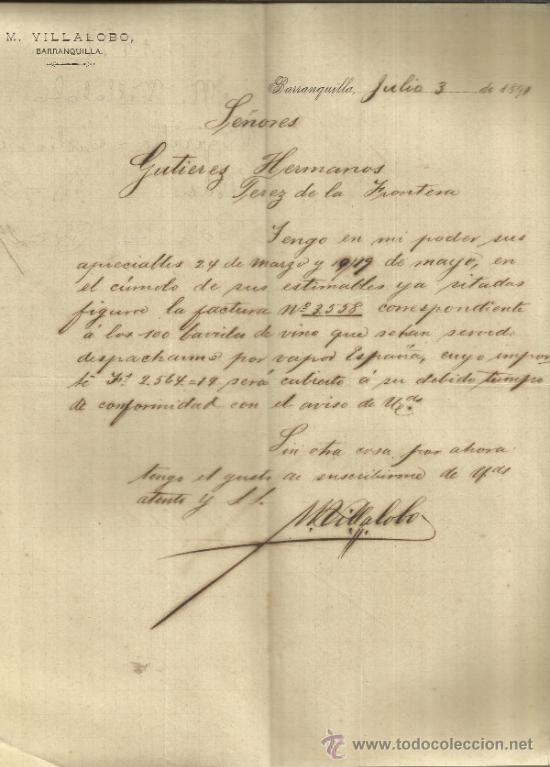 M. VILLALOBO,
BARRANQUILLA.
Barranquilla, Julio 3 de 189
Señores
Gutierez Hermanos
Jerez de la Frontera
Tengo en mi poder sus
apreciables 24 de marzo y 19 de mayo, en
el cúmolo de sus estimables ya sitadas
figuro la factura Nº 3.558 correspondiente
á los 100 bariles de vino que se han servido
despacharme por vapor España, cuyo impor
te Frs 2.564=14 será cubierto á su debido tiempo
de conformidad con el aviso de Uds.
Sin otra cosa por ahora
tengo el gusto de suscribirme de Uds
atento y S.S.
M. Villalobo
todocoleccion
www.todocoleccion.net